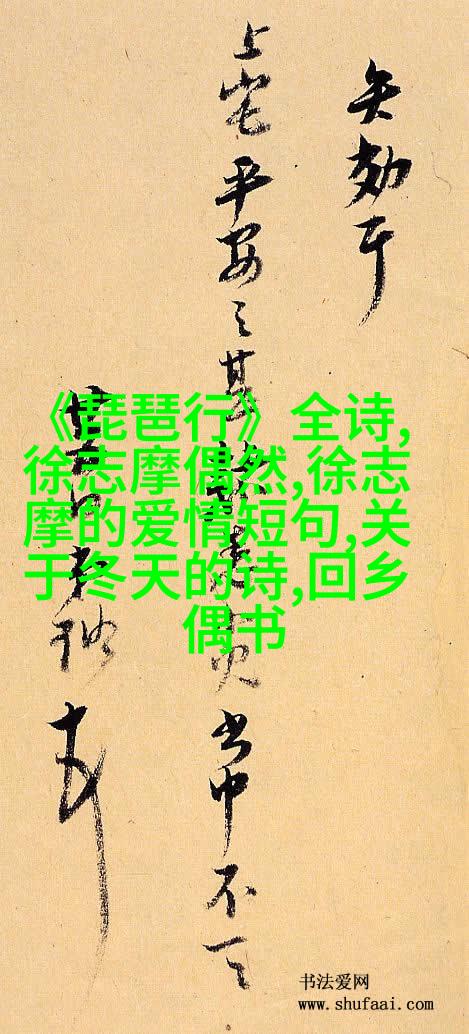 上宅平安之甚 書中不一
《琵琶行》全诗,
徐志摩偶然,徐志
摩的爱情短句,关
于冬天的诗,回乡
偶书
书法爱网
www.shufaai.com